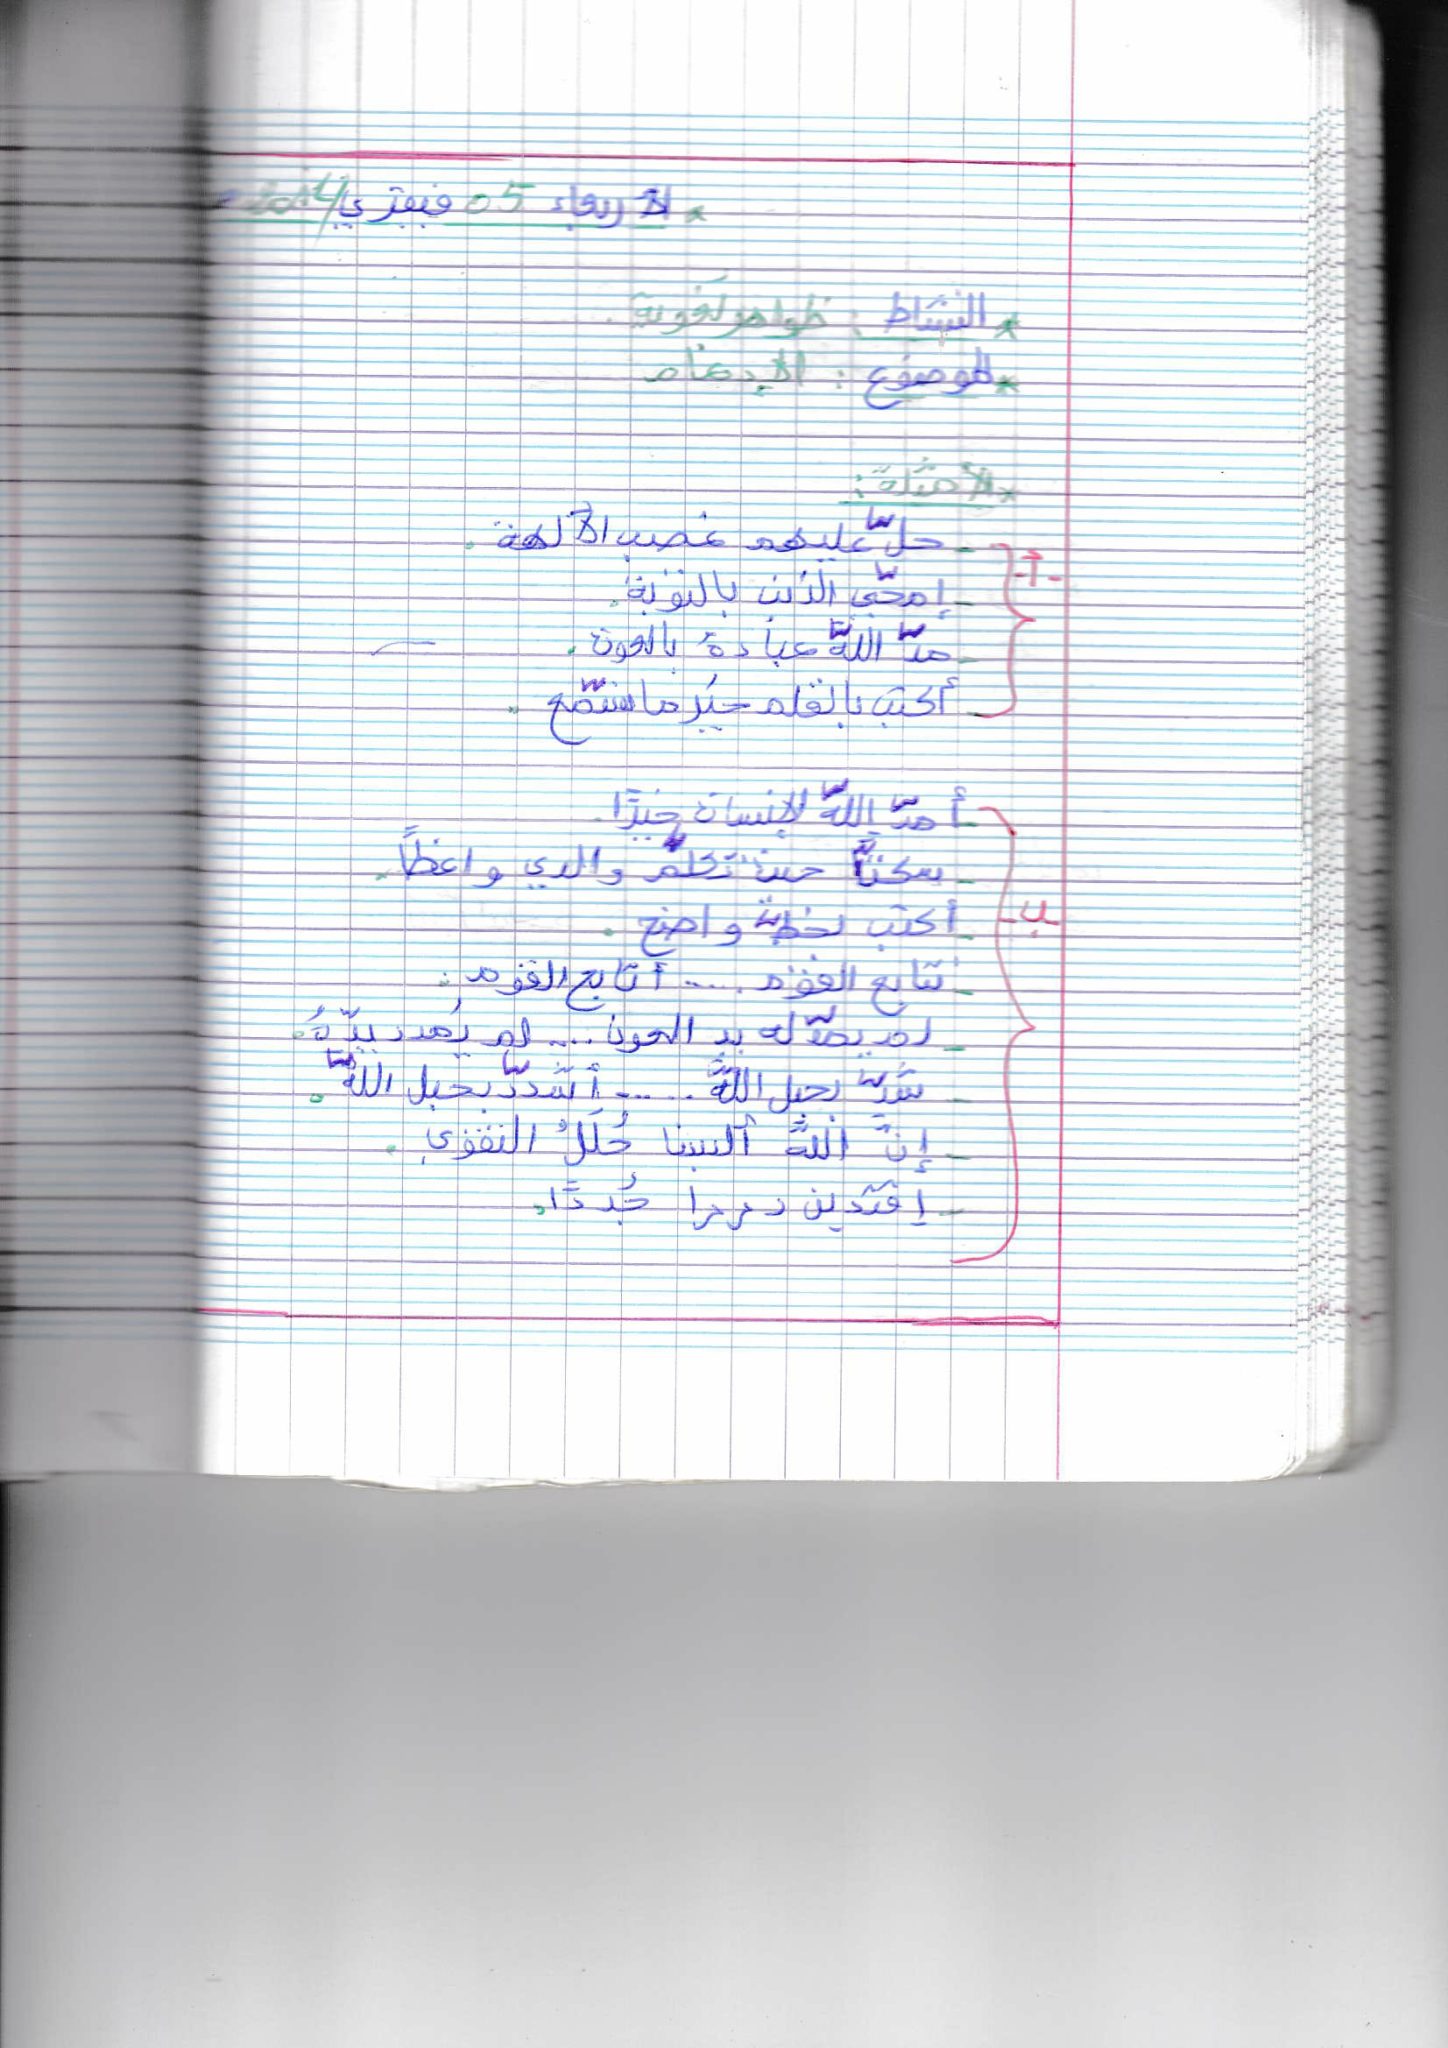 * الأربعاء 05 فيفري 2014
* النشاط : ظواهر لغوية .
* الموضوع : الإدغام
* الأمثلة :
- أ -
- حلّ عليهم غضب الآلهة .
- إمحّى الذنب بالتوبة .
- مدّ اللّه عبادهُ بالعون .
- أكتب بالقلم حبر ما
- ب -
- أمدّ اللّه الإنسان خيرًا .
- سكنتّا حين تكلّم والدي واعظاً .
- أكتب بخطّ واضح .
- نتابع القوم .... أتابع القوم .
- لم يمدّ له يد العون .... لم يُمدد يدّهُ .
- شدّ بحبل اللّه .... أشددّ بحبل اللّه .
- إنّ اللّه ألبسنا حُلَلُ التقوى .
- إقتدين دررا جُددًا .